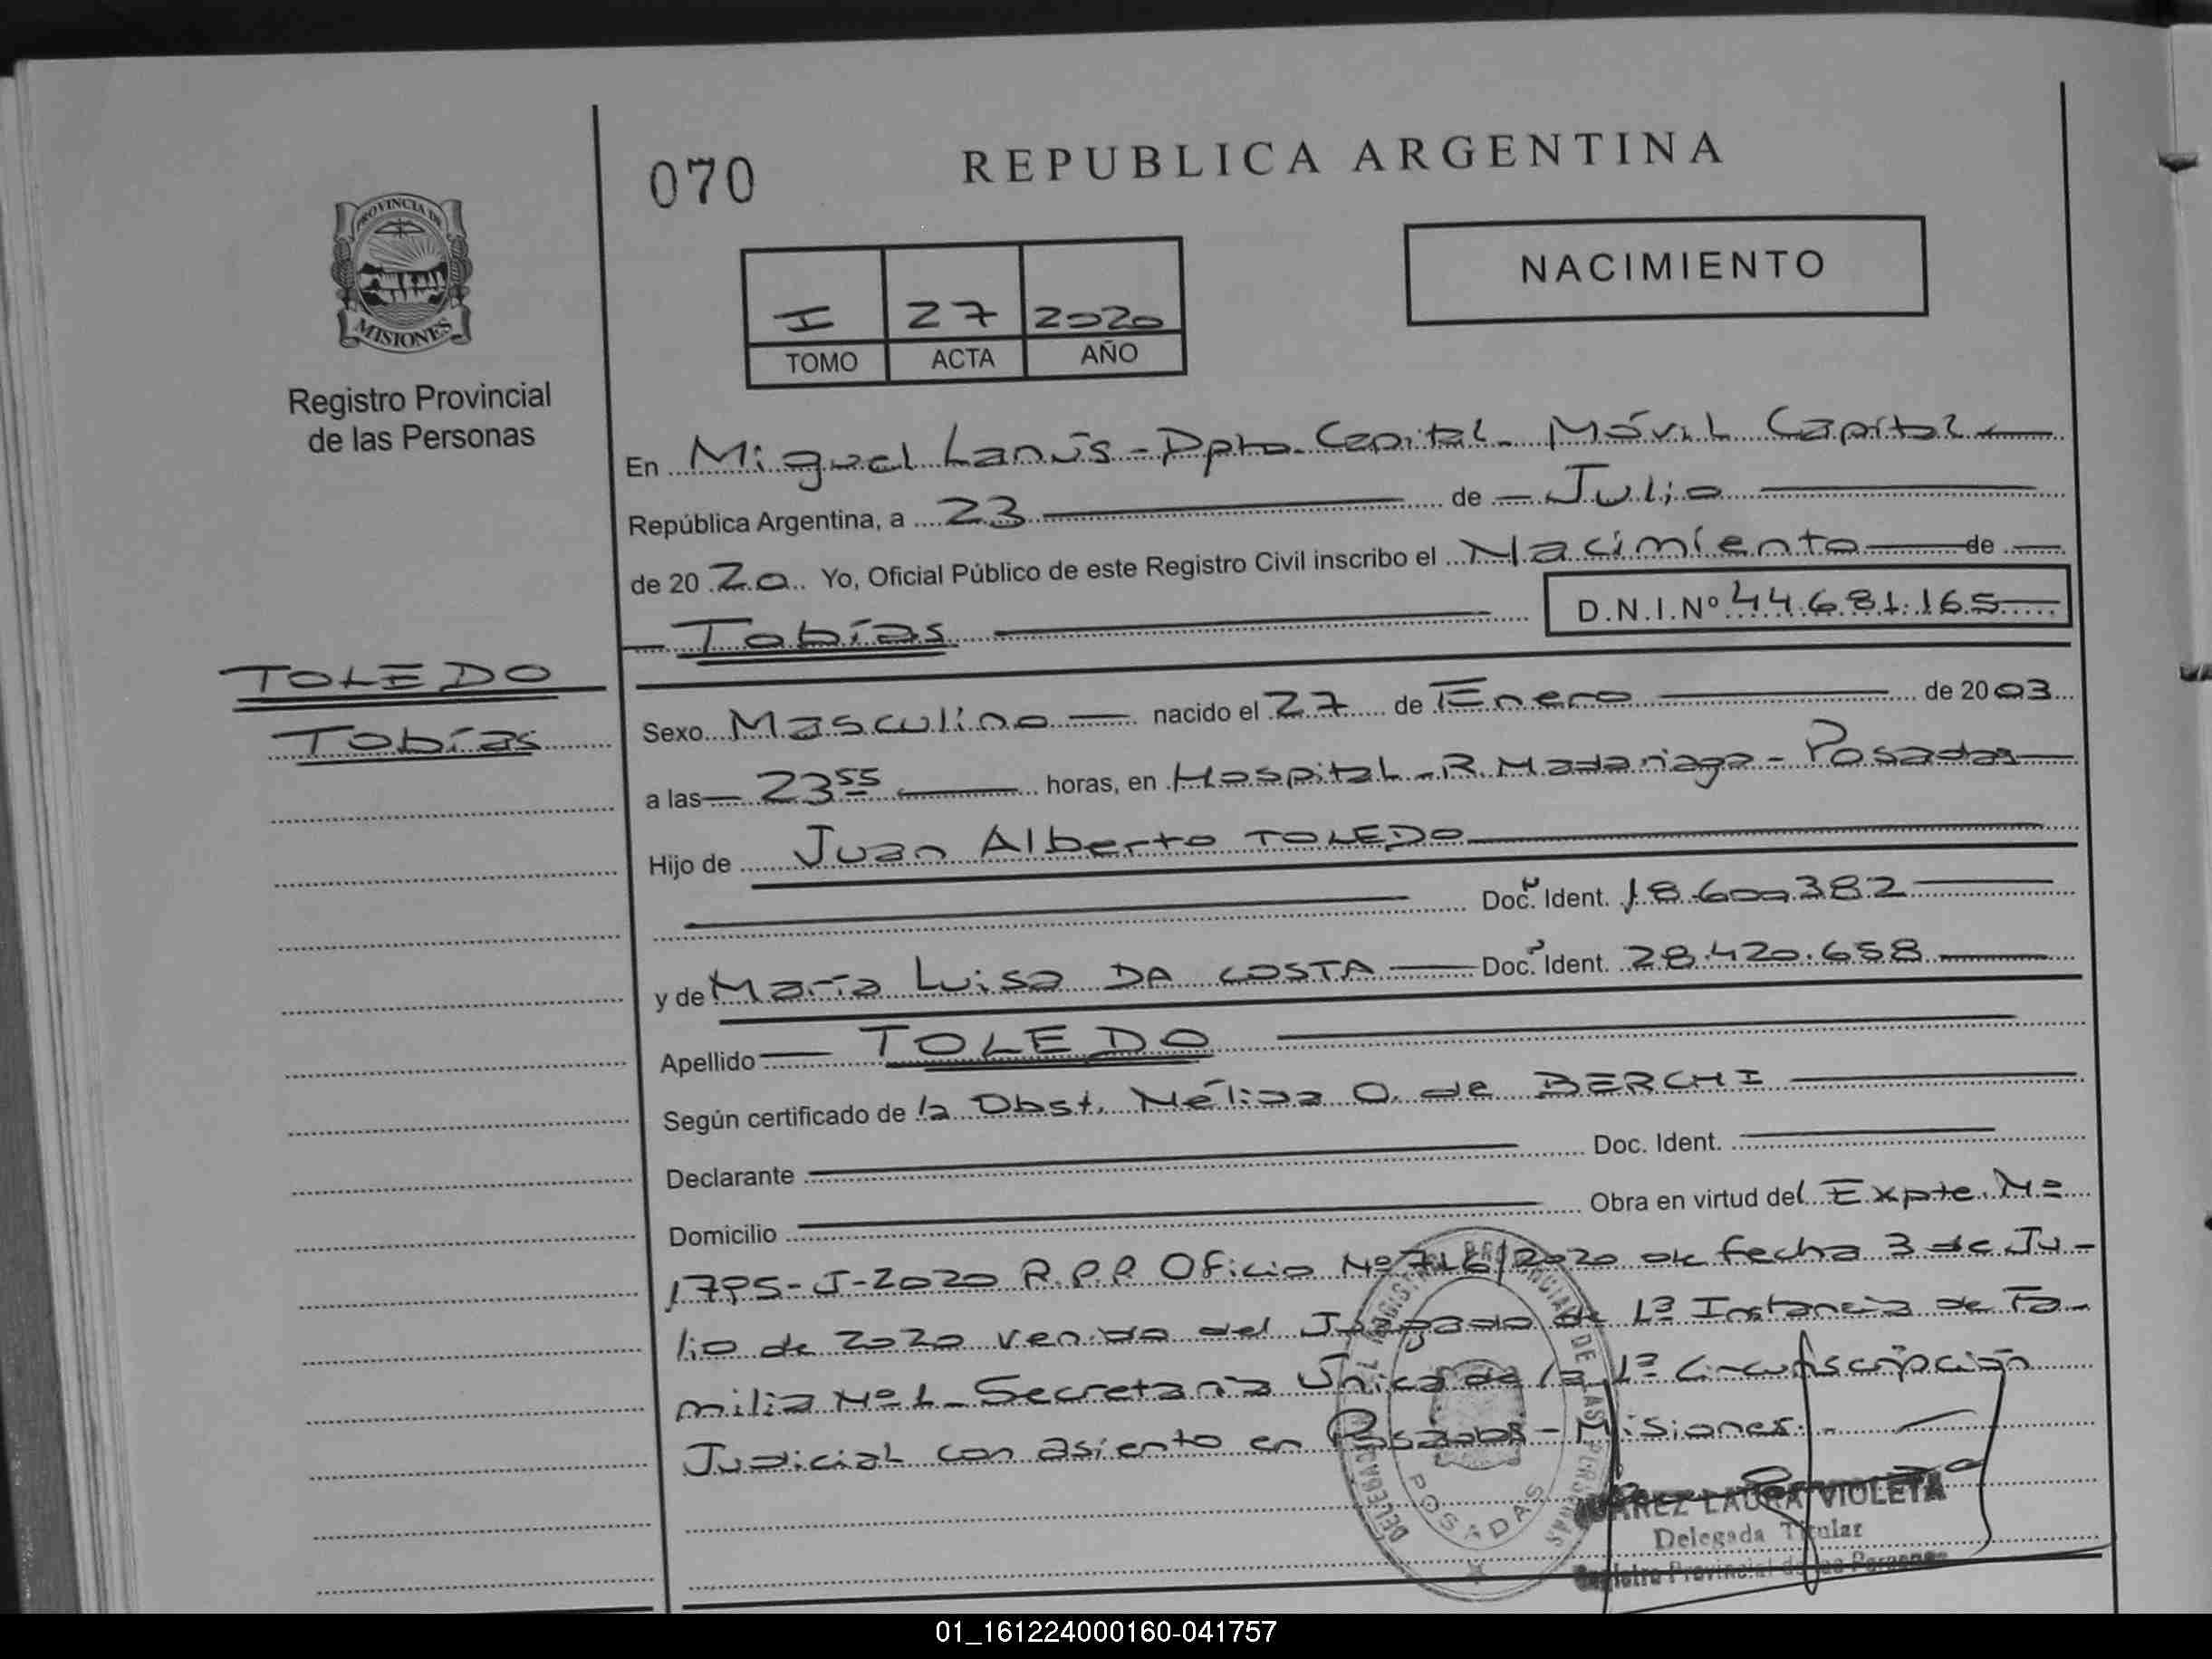 070
REPUBLICA ARGENTINA
PROVINCIA DE
MISIONES
Registro Provincial
de las Personas
NACIMIENTO
I 27 2020
TOMO ACTA AÑO
En Miguel Lanús - Dpto. Capital - Móvil Capital
República Argentina, a 23 de Julio
de 2020 Yo, Oficial Público de este Registro Civil inscribo el Nacimiento de
Tobías D.N.I.Nº 44.681.165
TOLEDO
Tobías
Sexo Masculino nacido el 27 de Enero de 2003
a las 23 55 horas, en Hospital - R. Madariaga - Posadas
Hijo de Juan Alberto TOLEDO
Doc. Ident. 18.600.382
y de María Luisa DA COSTA Doc. Ident. 28.420.658
Apellido TOLEDO
Según certificado de la Obst. Nélida O. de BERCHI
Declarante Doc. Ident.
Domicilio Obra en virtud del Expte. Nº
1795-J-2020 R.P.P Oficio Nº 716/2020 de fecha 3 de Ju-
lio de 2020 venido del Juzgado de 1ª Instancia de Fa-
milia Nº 1 - Secretaría Única de la 1ª Circunscripción
Judicial con asiento en Posadas - Misiones.-
REGISTRO PROVINCIAL DE LAS PERSONAS
POSADAS
JUAREZ LAURA VIOLETA
Delegada Titular
Registro Provincial de las Personas
01_161224000160-041757